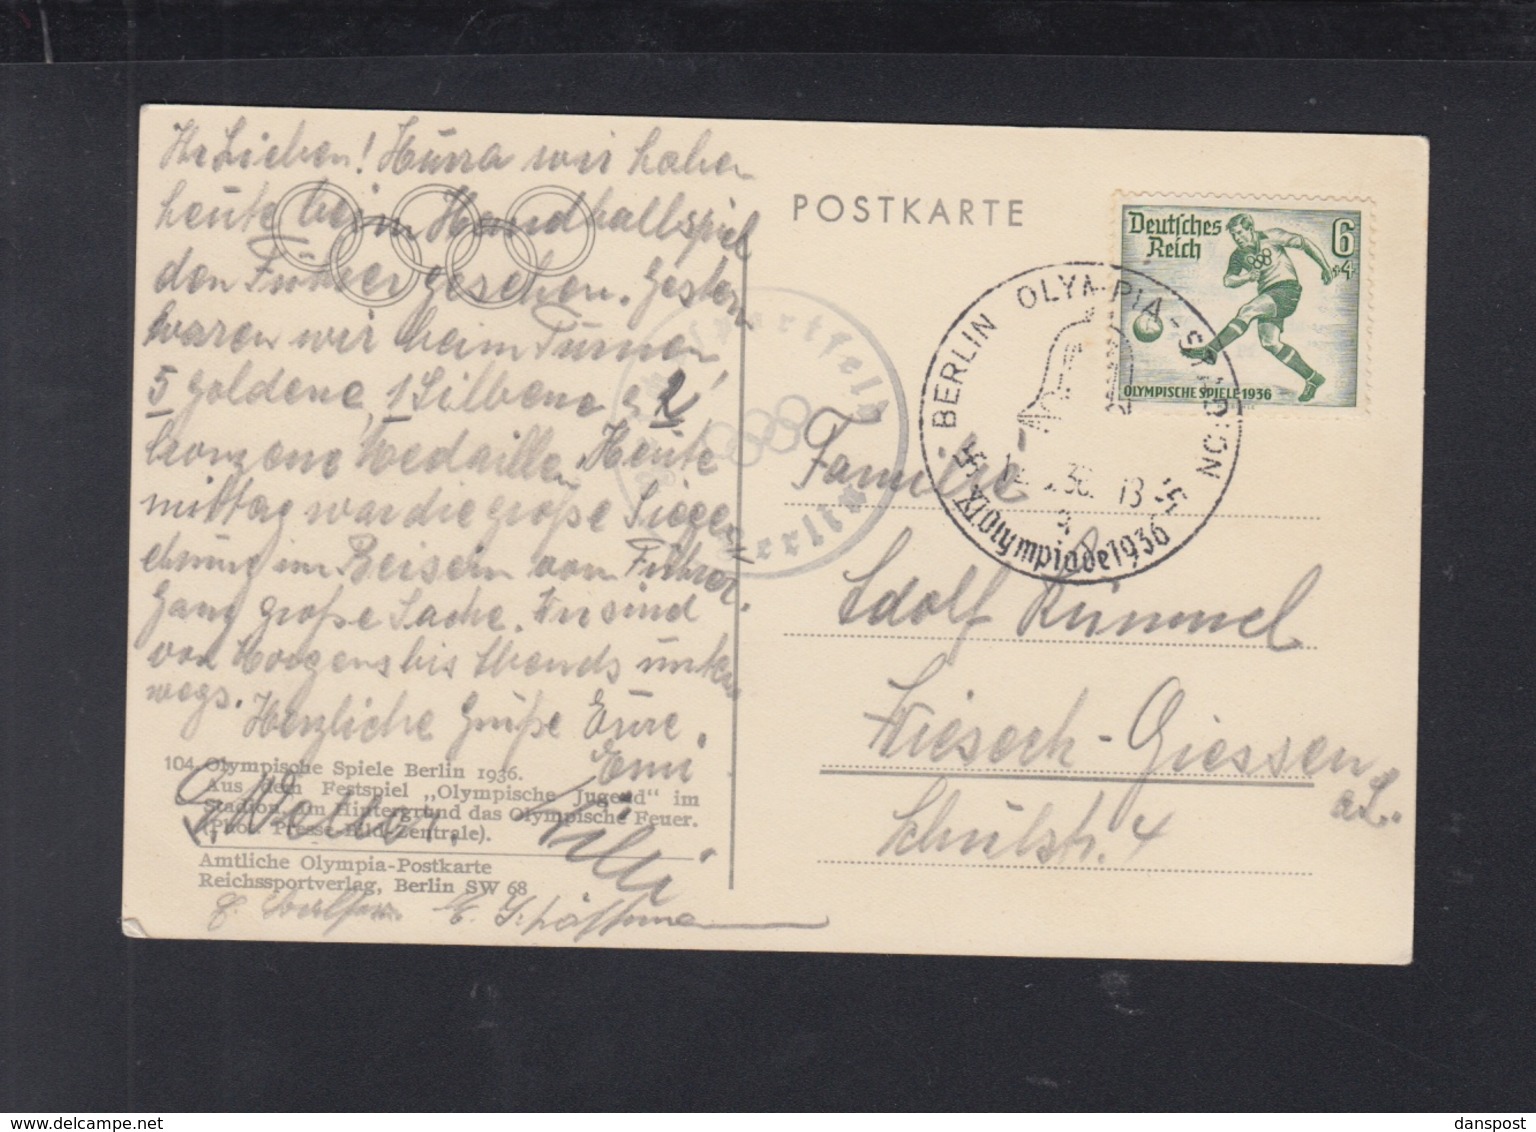 Ihr Lieben! Hurra wir haben
heute beim Handballspiel
den Führer gesehen. Gestern
waren wir beim Turnen
5 goldene, 1 Silberne & 2
bronzene Medaillen. Heute
mittag war die große Siegere
ehrung im Beisein vom Führer.
Ganz große Sache. Wir sind
von Morgens bis Abends unter
wegs. Herzliche Grüße Eure
Emi
104 Olympische Spiele Berlin 1936.
Aus dem Festspiel „Olympische Jugend" im
Stadion. Im Hintergrund das Olympische Feuer.
(Phot. Presse-Bild-Zentrale).
Amtliche Olympia-Postkarte
Reichssportverlag, Berlin SW 68
POSTKARTE
Deutsches
Reich
6
+4
OLYMPISCHE SPIELE 1936
BERLIN OLYMPIA-STADION
XI. Olympiade 1936
sportfeld
Berlin
Familie
Adolf Rümmel
Wieseck-Giessen
a.L.
Schulstr. 4
danspost
delcampe.net